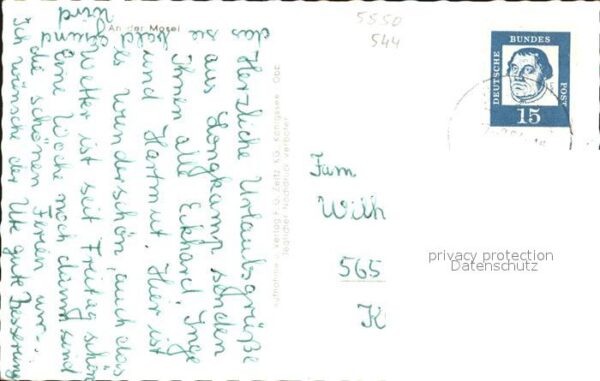 An der Mosel
5550
544
Herzliche Urlaubsgrüße
aus Longkamp senden
Ihnen alle Eckhard, Inge
und Hartmut. Hier ist
es wunderschön, auch das
Wetter ist seit Freitag schön
Eine Woche noch dann sind
die schönen Ferien um.
Ich wünsche der Ute gute Besserung
Aufnahme u. Verlag F. G. Zeitz, KG, Königsee Obb.
Jeglicher Nachdruck verboten
DEUTSCHE
BUNDES
POST
15
Fam
Wilh
565
K
privacy protection
Datenschutz